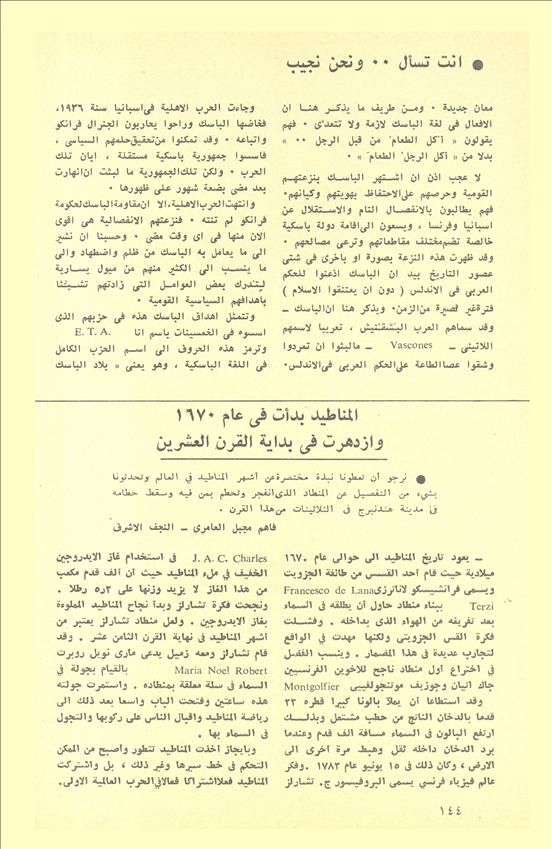 ● انت تسأل ٠٠ ونحن نجيب
معان جديدة ٠ ومن طريف ما يذكر هنا ان
الافعال فى لغة الباسك لازمة ولا تتعدى ٠ فهم
يقولون « أكل الطعام من قبل الرجل ٠٠ »
بدلا من « أكل الرجل الطعام » ٠
لا عجب اذن ان اشتهر الباسك بنزعتهم
القومية وحرصهم على الاحتفاظ بهويتهم وكيانهم ٠
فهم يطالبون بالانفصال التام والاستقلال عن
اسبانيا وفرنسا ، ويسعون الى اقامة دولة باسكية
خالصة تضم مختلف مقاطعاتهم وترعى مصالحهم ٠
وقد ظهرت هذه النزعة بصورة او باخرى فى شتى
عصور التاريخ بيد ان الباسك اذعنوا للحكم
العربى فى الاندلس ( دون ان يعتنقوا الاسلام )
فترة غير قصيرة من الزمن ٠ ويذكر هنا ان الباسك ــ
وقد سماهم العرب البشقنيش ، تعريبا لاسمهم
اللاتينى ــ Vascones ــ مالبثوا ان تمردوا
وشقوا عصا الطاعة على الحكم العربى فى الاندلس ٠
وجاءت الحرب الاهلية فى اسبانيا سنة ١٩٣٦،
فخاضها الباسك وراحوا يحاربون الجنرال فرانكو
واتباعه ٠ وقد تمكنوا من تحقيق حلمهم السياسى ،
فأسسوا جمهورية باسكية مستقلة ، ابان تلك
الحرب ٠ ولكن تلك الجمهورية ما لبثت ان انهارت
بعد مضى بضعة شهور على ظهورها ٠
وانتهت الحرب الاهلية، الا ان مقاومة الباسك لحكومة
فرانكو لم تنته ٠ فنزعتهم الانفصالية هى اقوى
الان منها فى اى وقت مضى ٠ وحسبنا ان نشير
الى ما يعامل به الباسك من ظلم واضطهاد والى
ما ينسب الى الكثير منهم من ميول يسارية
ليتدرك بعض العوامل التى زادتهم تشبثا
باهدافهم السياسية القومية ٠
وتتمثل اهداف الباسك هذه فى حزبهم الذى
اسسوه فى الخمسينات باسم اتا E. T. A.
وترمز هذه الحروف الى اسم الحزب الكامل
فى اللغة الباسكية ، وهو يعنى « بلاد الباسك
المناطيد بدأت فى عام ١٦٧٠
وازدهرت فى بداية القرن العشرين
● نرجو أن تعطونا نبذة مختصرة عن أشهر المناطيد في العالم وتحدثونا
بشيء من التفصيل عن المنطاد الذى انفجر وتحطم بمن فيه وسقط حطامه
فى مدينة هندنبرج فى الثلاثينات من هذا القرن ٠
فاهم مجبل العامرى ــ النجف الاشرف
ــ يعود تاريخ المناطيد الى حوالى عام ١٦٧٠
ميلادية حيث قام أحد القسس من طائفة الجزويت
ويسمى فرانشيسكو لاناترزى Francesco de Lana
Terzi ببناء منطاد حاول أن يطلقه فى السماء
بعد تفريغه من الهواء الذى بداخله ٠ وفشلت
فكرة القس الجزويتى ولكنها مهدت في الواقع
لتجارب عديدة فى هذا المضمار ٠ وينسب الفضل
في اختراع أول منطاد ناجح للاخوين الفرنسيين
جاك اتيان وجوزيف مونتجولفييى Montgolfier
وقد استطاعا أن يملآ بالونا كبيرا قطره ٣٣
قدما بالدخان الناتج من حطب مشتعل وبذلك
ارتفع البالون فى السماء مسافة الف قدم وعندما
برد الدخان داخله ثقل وهبط مرة أخرى الى
الارض ، وكان ذلك فى ١٥ يونيو عام ١٧٨٣. وفكر
عالم فيزياء فرنسي يسمى البروفيسور ج. تشارلز
J. A. C. Charles فى استخدام غاز الايدروجين
الخفيف في ملء المناطيد حيث أن ألف قدم مكعب
من هذا الغاز لا يزيد وزنها على ٥ر٣ رطلا .
ونجحت فكرة تشارلز وبدأ نجاح المناطيد المملوءة
بغاز الايدروجين ٠ ولعل منطاد تشارلز يعتبر من
أشهر المناطيد في نهاية القرن الثامن عشر . وقد
قام تشارلز ومعه زميل يدعى مارى نويل روبرت
Maria Noel Robert بالقيام بجولة في
السماء في سلة معلقة بمنطاده . واستمرت جولته
هذه ساعتين وفتحت الباب واسعا بعد ذلك الى
رياضة المناطيد واقبال الناس على ركوبها والتجول
فى السماء بها .
وبايجاز أخذت المناطيد تتطور وأصبح من الممكن
التحكم في خط سيرها وغير ذلك ، بل واشتركت
المناطيد فعلا اشتراكا فعالا في الحرب العالمية الاولى.
١٤٤